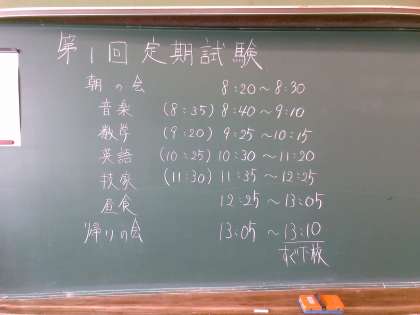 第1回定期試験
朝の会 8:20～8:30
音楽 (8:35) 8:40～9:10
数学 (9:20) 9:25～10:15
英語 (10:25) 10:30～11:20
技家 (11:30) 11:35～12:25
昼食 12:25～13:05
帰りの会 13:05～13:10
すぐ下校